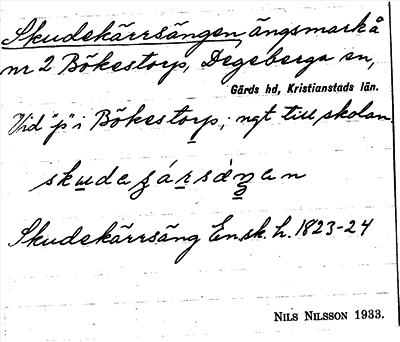 Skudekärrsängen, ängsmark å
nr 2 Bökestorp, Degeberga sn,
Gärds hd, Kristianstads län.
Vid "p" i Bökestorp; ngt till skolan.
Skudekärrsäng Ensk. h. 1823-24
NILS NILSSON 1933.